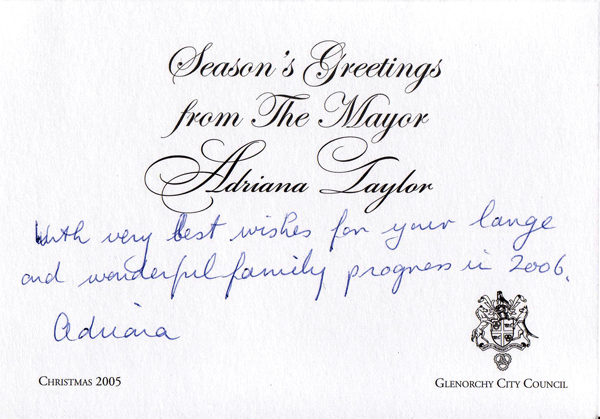 Season's Greetings
from The Mayor
Adriana Taylor
With very best wishes for your large
and wonderful family progress in 2006.
Adriana
CHRISTMAS 2005
GLENORCHY CITY COUNCIL